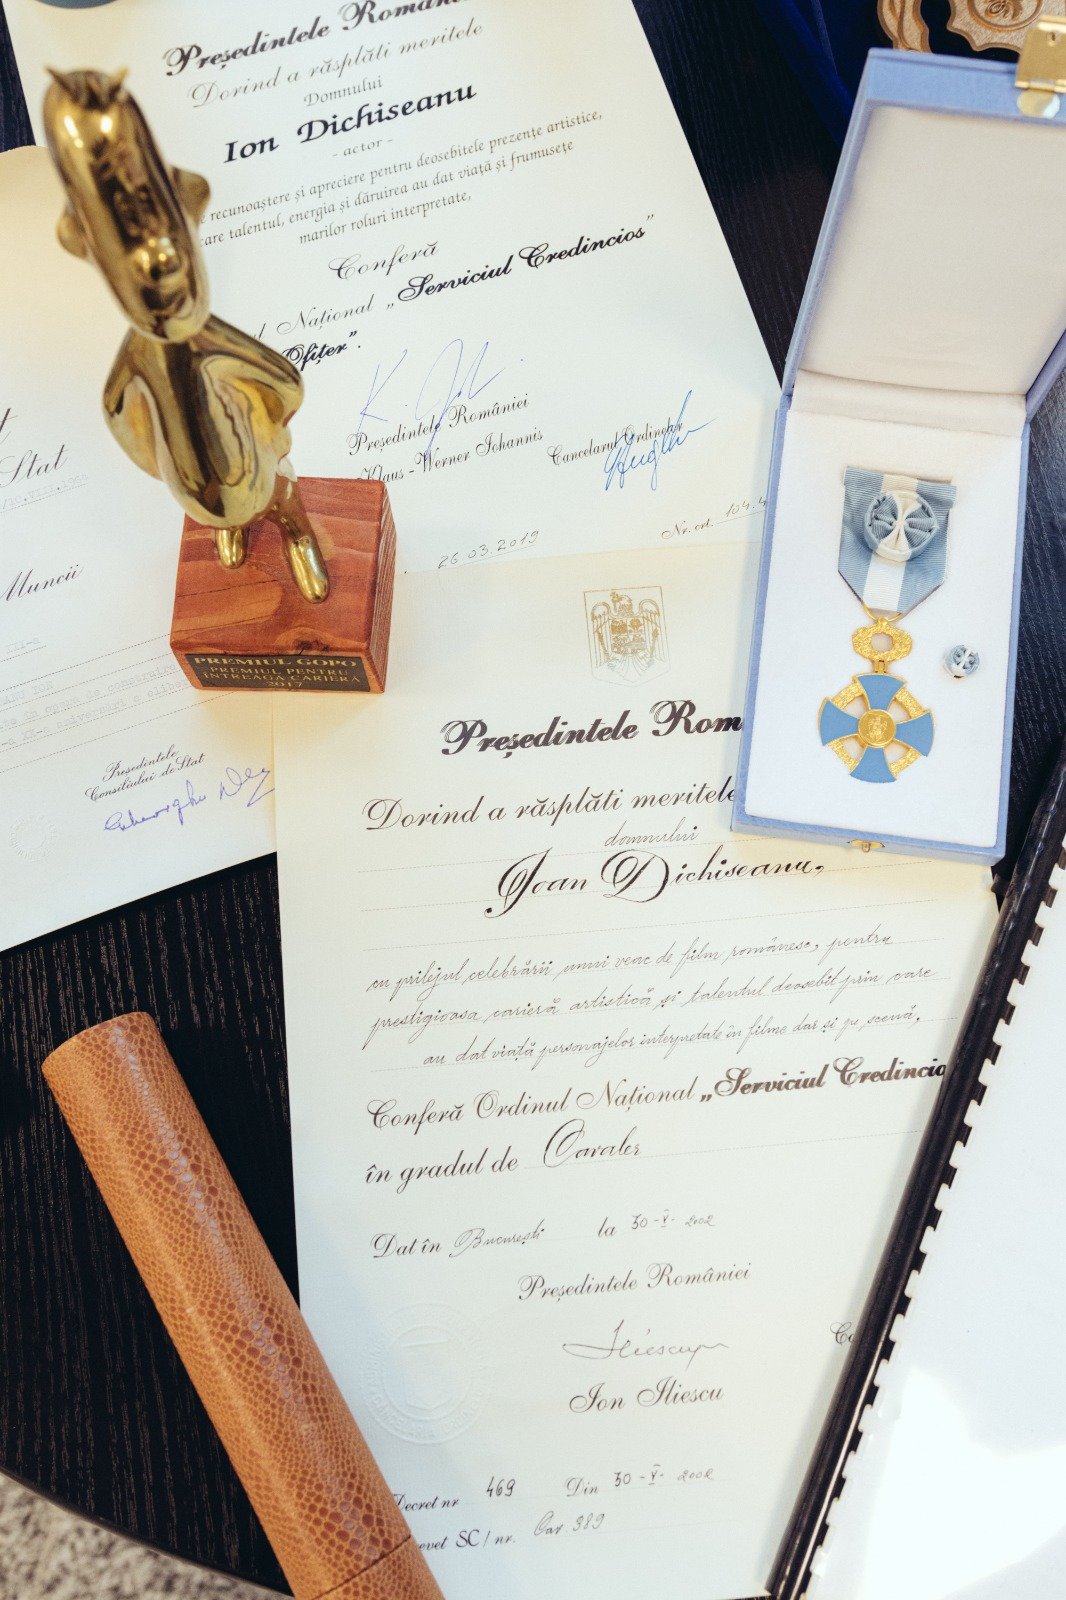 Președintele României
Dorind a răsplăti meritele
Domnului
Ion Dichiseanu
- actor -
recunoaștere și apreciere pentru deosebitele prezențe artistice,
care talentul, energia și dăruirea au dat viață și frumusețe
marilor roluri interpretate,
Conferă
Național „Serviciul Credincios”
Ofițer”.
Președintele României
Klaus - Werner Iohannis
Cancelarul Ordinelor
26.03.2019
Nr. crt. 104.4
Stat
Muncii
Președintele
Consiliului de Stat
PREMIUL GOPO
PREMIUL PENTRU
ÎNTREAGA CARIERĂ
2017
Președintele Rom
Dorind a răsplăti meritele
domnului
Ioan Dichiseanu,
cu prilejul celebrării unui veac de film românesc, pentru
prestigioasa carieră artistică și talentul deosebit prin care
au dat viață personajelor interpretate în filme dar și pe scenă,
Conferă Ordinul Național „Serviciul Credincio
în gradul de Cavaler
Dat în București la 30-V-2002
Președintele României
Iliescu
Ion Iliescu
Decret nr 469 Din 30-V-2002
evet SC / nr. Cav. 389